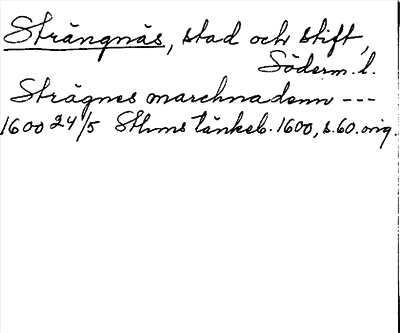 Strängnäs, stad och stift,
Söderm. l.
Strägnes marchnadenn ---
1600 24/5 Sthms tänkeb. 1600, s. 60. orig.